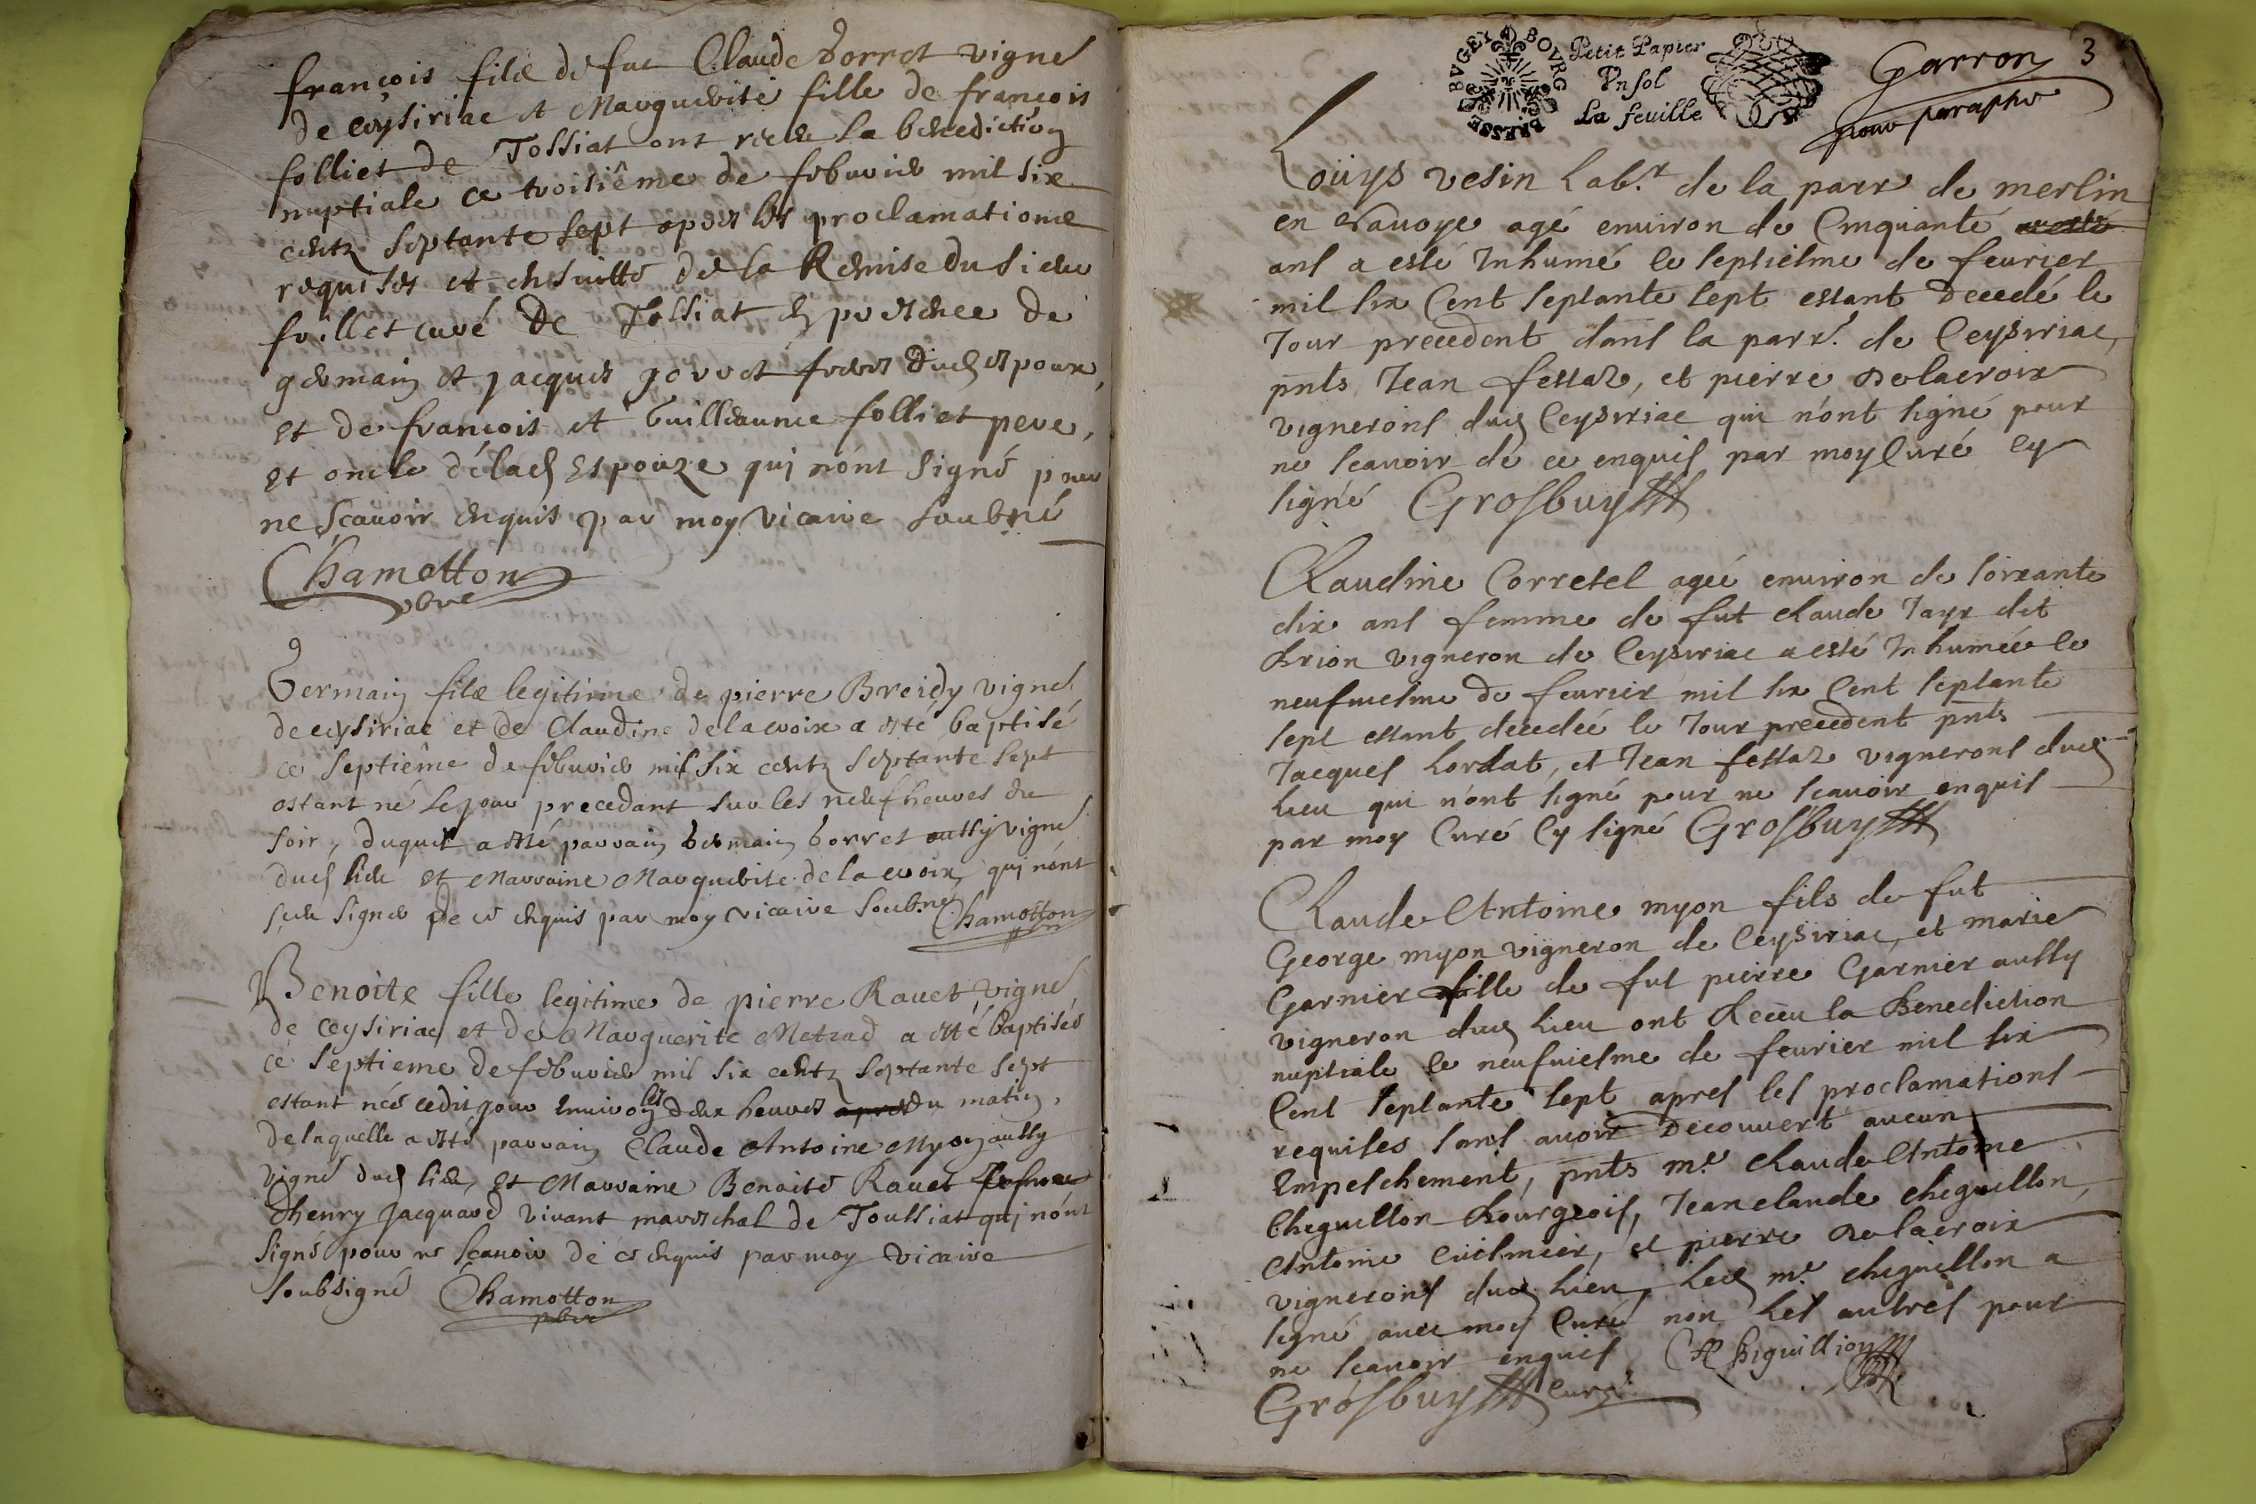 françois filz de fut Claude Gorret vigne͠
de ceysiriac et Marguerite fille de françois
folliet de Tossiat ont receu la benediction
nuptiale ce troisiême de febvrier mil six
centz septante sept apres les proclamations
requises et ensuitte de la Remise du sieur
foillet curé de Tossiat en presence de
germain et jacques gorret freres dud espoux,
et de françois et Guilleaume folliet pere,
et oncle de lad Espouze qui n'ont signé pour
ne scavoir enquis par moy vicaire soubne
Chamotton
pbre
Germain filz legitime de pierre Breidy vigne͠
de ceysiriac et de Claudine delacroix a esté baptisé
ce septiême de febvrier mil six centz septante sept
estant né le jour precedant sur les neuf heures du
soir, duquel a esté parrain Germain Gorret aussy vigne͠
dud lieu et Marraine Marguerite delacroix, qui n'ont
sceu signer de ce enquis par moy vicaire soub.né Chamotton
Benoite fille legitime de pierre Ravet vigne͠
de ceysiriac et de Marguerite Metrad a esté baptisée
ce septieme de febvrier mil six centz septante sept
estant née cedit jour environ les deux heures apres du matin,
de laquelle a esté parrain Claude Antoine Myon aussy
vigne͠ dud lieu, et Marraine Benoite Ravet
d'henry Jacquard vivant mareschal de Toussiat qui n'ont
signé pour ne scavoir de ce enquis par moy vicaire
soubsigné Chamotton
pbre
BRESSE BUGEY BOURG
Petit Papier
Vn sol
La feuille
Garron 3
pour paraphe
Loüys vesin Lab.r de la parr de merlin
en savoye agé environ de Cinquante a esté
ans a esté Inhumé le septiesme de fevrier
mil six Cent septante sept estant Decedé le
Jour precedent dans la parr. de Ceysiriac,
pnts Jean fessaz, et pierre Delacroix
vignerons dud Ceysiriac qui n'ont signé pour
ne scavoir de ce enquis par moy Curé Cy
signé Grosbuy
Claudine Corretel agée environ de soixante
dix ans femme de fut Claude Tayr dit
Brion vigneron de Ceysiriac a esté Inhumée le
neufviesme de fevrier mil six Cent septante
sept estant decedée le Jour precedent pnts
Jacques Lordat, et Jean fessaz vignerons dud
Lieu qui n'ont signé pour ne scavoir enquis
par moy Curé Cy signé Grosbuy
Claude Antoine myon fils de fut
George myon vigneron de Ceysiriac, et marie
Garnier fille de fut pierre Garnier aussy
vigneron dud Lieu ont Receu la Benediction
nuptiale le neufviesme de fevrier mil six
Cent septante sept apres les proclamations
requises sans avoir Decouvert aucun
Empeschement, pnts m.e Claude Antoine
Cheguillon Bourgeois, Jean claude cheguillon,
Antoine Cuilmier, et pierre Delacroix
vignerons dud Lieu, Led m.e cheguillon a
signé avec moy Curé non Les autres pour
ne scavoir enquis CA Chiguillion
Grosbuy Curé